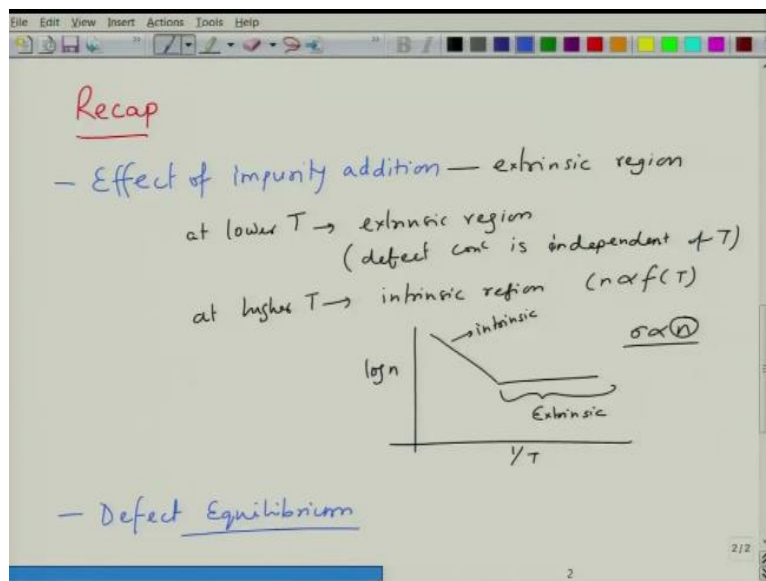 File Edit View Insert Actions Tools Help
B I
Recap
- Effect of impurity addition — extrinsic region
at lower T → extrinsic region
(defect conc is independent of T)
at higher T → intrinsic region (n α f(T)
→ intrinsic
σ α n
log n
Extrinsic
1/T
- Defect Equilibrium
2/2
2